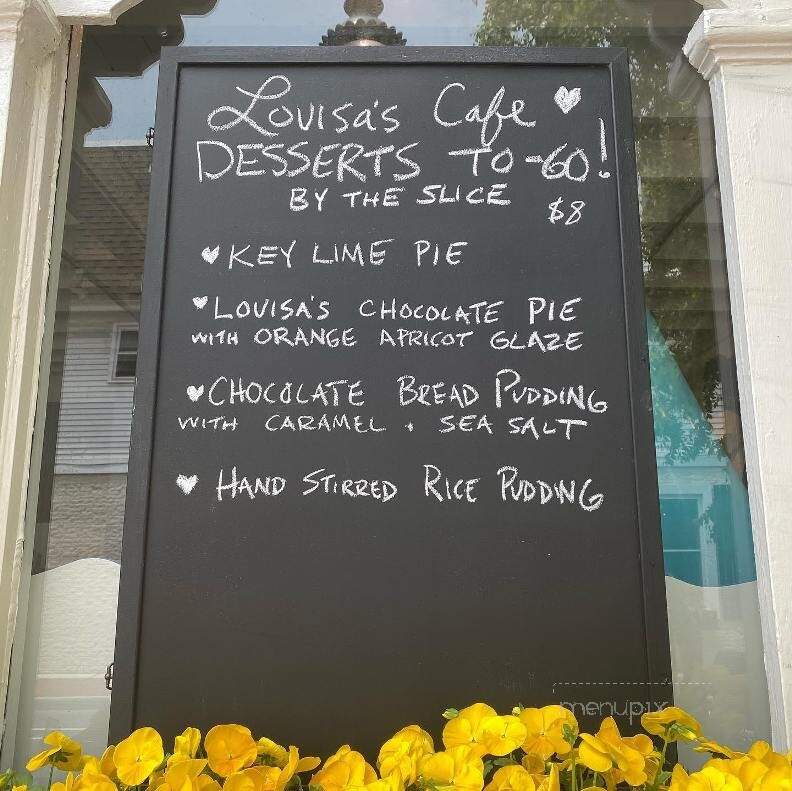 Louisa's Cafe
DESSERTS TO-GO!
BY THE SLICE
$8
KEY LIME PIE
LOUISA'S CHOCOLATE PIE
WITH ORANGE APRICOT GLAZE
CHOCOLATE BREAD PUDDING
WITH CARAMEL + SEA SALT
HAND STIRRED RICE PUDDING
menupix